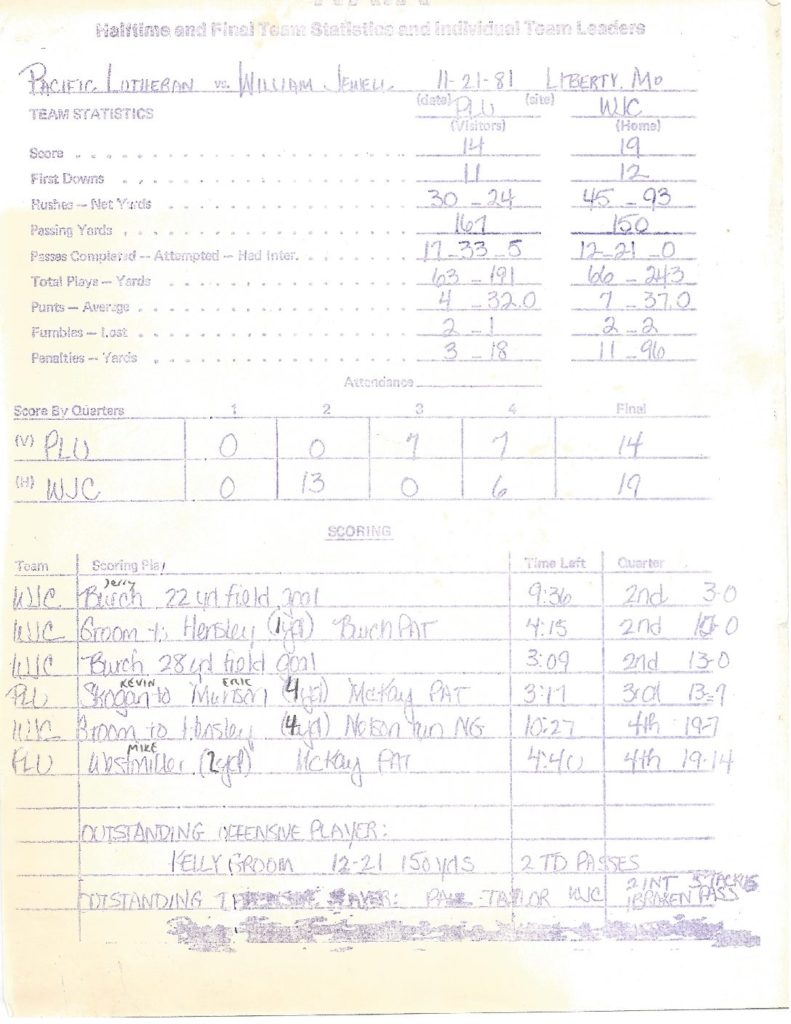 Halftime and Final Team Statistics and Individual Team Leaders
PACIFIC LUTHERAN vs. WILLIAM JEWELL 11-21-81 LIBERTY, MO
(date) (site)
TEAM STATISTICS PLU WJC
(Visitors) (Home)
Score 14 19
First Downs 11 12
Rushes — Net Yards 30 - 24 45 - 93
Passing Yards 167 150
Passes Completed — Attempted — Had Inter. 17-33-5 12-21-0
Total Plays — Yards 63 - 191 66 - 243
Punts — Average 4 - 32.0 7 - 37.0
Fumbles — Lost 2 - 1 2 - 2
Penalties — Yards 3 - 18 11 - 96
Attendance
Score By Quarters 1 2 3 4 Final
(V) PLU 0 0 7 7 14
(H) WJC 0 13 0 6 19
SCORING
Team Scoring Play Time Left Quarter
WJC Jerry Burch 22 yd field goal 9:36 2nd 3-0
WJC Groom to Hensley (1yd) Burch PAT 4:15 2nd 10-0
WJC Burch 28 yd field goal 3:09 2nd 13-0
PLU KEVIN Skogan to ERIC Monson (4yd) McKay PAT 3:17 3rd 13-7
WJC Groom to Hensley (4yd) Nelson run NG 10:27 4th 19-7
PLU MIKE Westmiller (2yd) McKay PAT 4:40 4th 19-14
OUTSTANDING OFFENSIVE PLAYER:
KELLY GROOM 12-21 150 YDS 2 TD PASSES
OUTSTANDING PLAYER: TAYLOR WJC 2 INT 5 TACKLES
1 BROKEN PASS